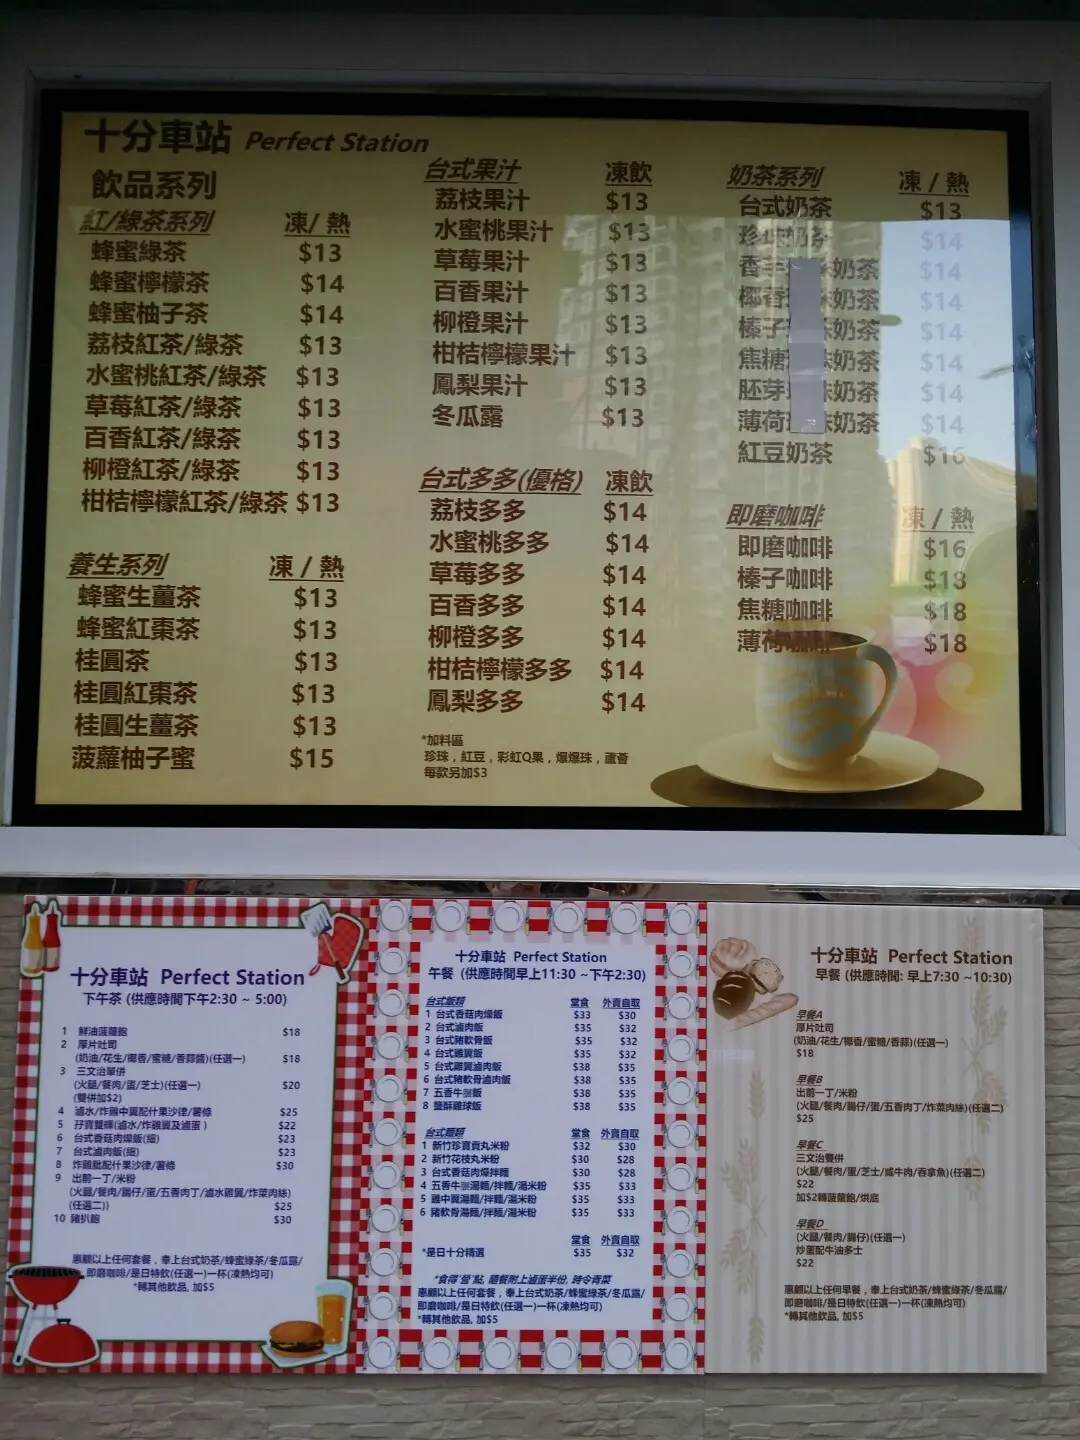 十分車站 Perfect Station
飲品系列
紅/綠茶系列 凍/ 熱
蜂蜜綠茶 $13
蜂蜜檸檬茶 $14
蜂蜜柚子茶 $14
荔枝紅茶/綠茶 $13
水蜜桃紅茶/綠茶 $13
草莓紅茶/綠茶 $13
百香紅茶/綠茶 $13
柳橙紅茶/綠茶 $13
柑桔檸檬紅茶/綠茶 $13
養生系列 凍 / 熱
蜂蜜生薑茶 $13
蜂蜜紅棗茶 $13
桂圓茶 $13
桂圓紅棗茶 $13
桂圓生薑茶 $13
菠蘿柚子蜜 $15
台式果汁 凍飲
荔枝果汁 $13
水蜜桃果汁 $13
草莓果汁 $13
百香果汁 $13
柳橙果汁 $13
柑桔檸檬果汁 $13
鳳梨果汁 $13
冬瓜露 $13
台式多多(優格) 凍飲
荔枝多多 $14
水蜜桃多多 $14
草莓多多 $14
百香多多 $14
柳橙多多 $14
柑桔檸檬多多 $14
鳳梨多多 $14
*加料區
珍珠，紅豆，彩虹Q果，爆爆珠，蘆薈
每款另加$3
奶茶系列 凍 / 熱
台式奶茶 $13
珍珠奶茶 $14
香芋 奶茶 $14
椰香 奶茶 $14
榛子 奶茶 $14
焦糖 奶茶 $14
胚芽 奶茶 $14
薄荷 奶茶 $14
紅豆奶茶 $16
即磨咖啡 凍 / 熱
即磨咖啡 $16
榛子咖啡 $18
焦糖咖啡 $18
薄荷咖啡 $18
十分車站 Perfect Station
下午茶 (供應時間下午2:30 ~ 5:00)
1 鮮油菠蘿飽 $18
2 厚片吐司
(奶油/花生/椰香/蜜糖/香蒜醬)(任選一) $18
3 三文治單併
(火腿/餐肉/蛋/芝士)(任選一) $20
(雙併加$2)
4 滷水/炸雞中翼配什果沙律/薯條 $25
5 孖寶雙輝(滷水/炸雞翼及滷蛋 ) $22
6 台式香菇肉燥飯(細) $23
7 台式滷肉飯(細) $23
8 炸雞批配什果沙律/薯條 $30
9 出前一丁/米粉
(火腿/餐肉/腸仔/蛋/五香肉丁/滷水雞翼/炸菜肉絲)
(任選二)) $25
10 豬扒飽 $30
惠顧以上任何套餐，奉上台式奶茶/蜂蜜綠茶/冬瓜露/
即磨咖啡/是日特飲(任選一)一杯(凍熱均可)
*轉其他飲品, 加$5
十分車站 Perfect Station
午餐 (供應時間早上11:30 ~下午2:30)
台式飯類 堂食 外賣自取
1 台式香菇肉燥飯 $33 $30
2 台式滷肉飯 $35 $32
3 台式豬軟骨飯 $35 $32
4 台式雞翼飯 $35 $32
5 台式雞翼滷肉飯 $38 $35
6 台式豬軟骨滷肉飯 $38 $35
7 五香牛𦟌飯 $38 $35
8 鹽酥雞球飯 $38 $35
台式麵類 堂食 外賣自取
1 新竹珍寶貢丸米粉 $32 $30
2 新竹花枝丸米粉 $30 $28
3 台式香菇肉燥拌麵 $30 $28
4 五香牛𦟌湯麵/拌麵/湯米粉 $35 $33
5 雞中翼湯麵/拌麵/湯米粉 $35 $33
6 豬軟骨湯麵/拌麵/湯米粉 $35 $33
堂食 外賣自取
*是日十分精選 $35 $32
*食得'營'點, 隨餐附上滷蛋半份, 時令青菜
惠顧以上任何套餐，奉上台式奶茶/蜂蜜綠茶/冬瓜露/
即磨咖啡/是日特飲(任選一)一杯(凍熱均可)
*轉其他飲品, 加$5
十分車站 Perfect Station
早餐 (供應時間: 早上7:30 ~10:30)
早餐A
厚片吐司
(奶油/花生/椰香/蜜糖/香蒜)(任選一)
$18
早餐B
出前一丁/米粉
(火腿/餐肉/腸仔/蛋/五香肉丁/炸菜肉絲)(任選二)
$25
早餐C
三文治雙併
(火腿/餐肉/蛋/芝士/咸牛肉/吞拿魚)(任選二)
$22
加$2轉菠蘿飽/烘底
早餐D
(火腿/餐肉/腸仔)(任選一)
炒蛋配牛油多士
$22
惠顧以上任何早餐，奉上台式奶茶/蜂蜜綠茶/冬瓜露/
即磨咖啡/是日特飲(任選一)一杯(凍熱均可)
*轉其他飲品, 加$5